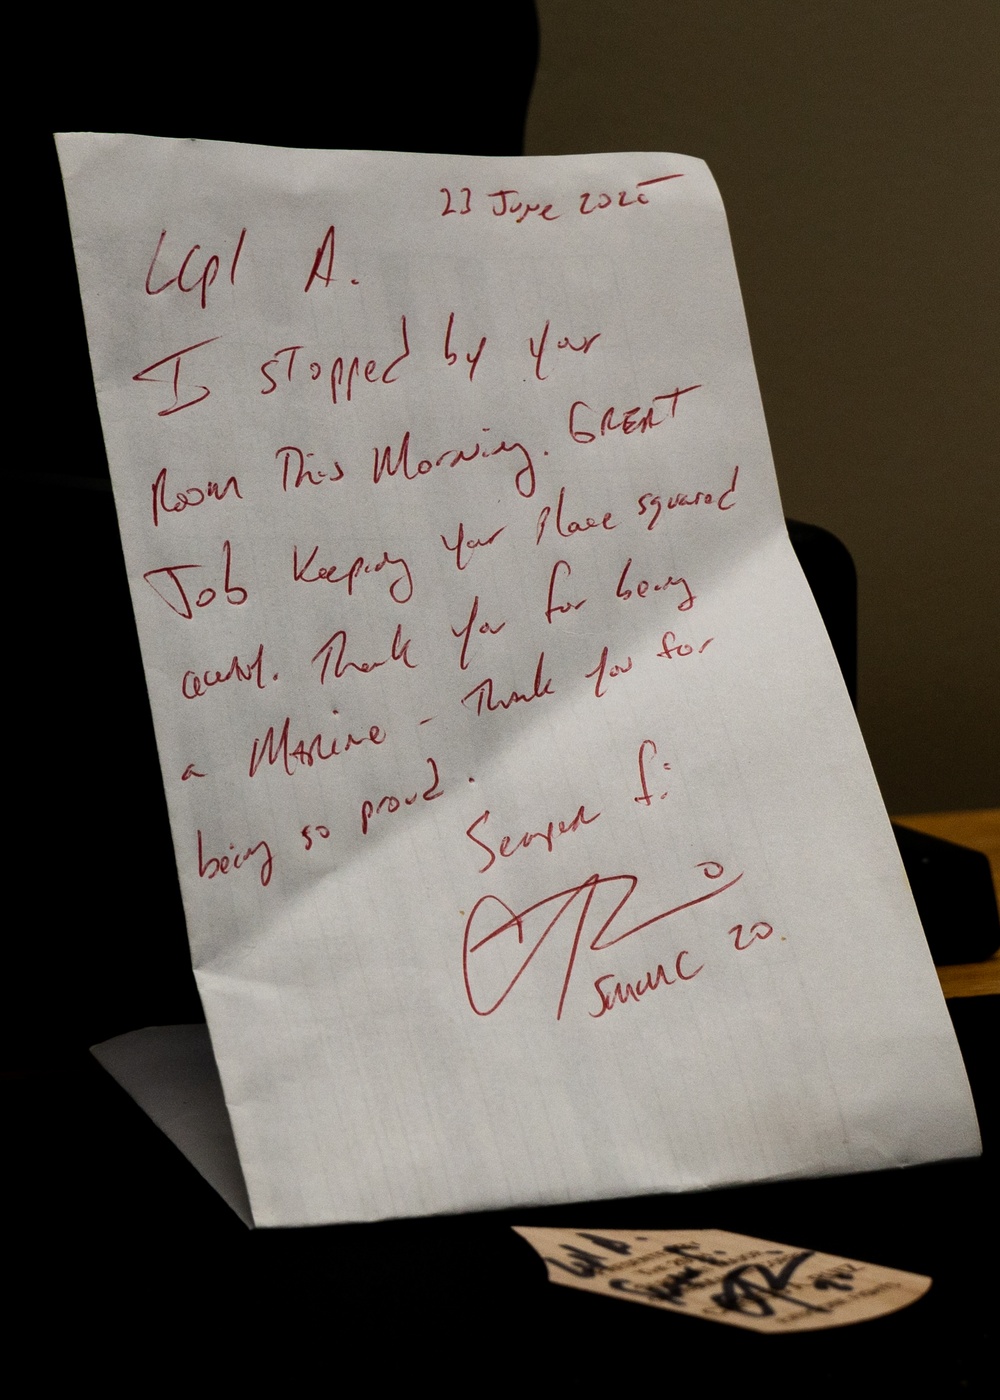 23 June 2025
LCpl A.
I stopped by your
Room This Morning. GREAT
Job Keeping your Place squared
away. Thank you for being
a Marine - Thank you for
being so proud.
Semper fi
SMMC 20.